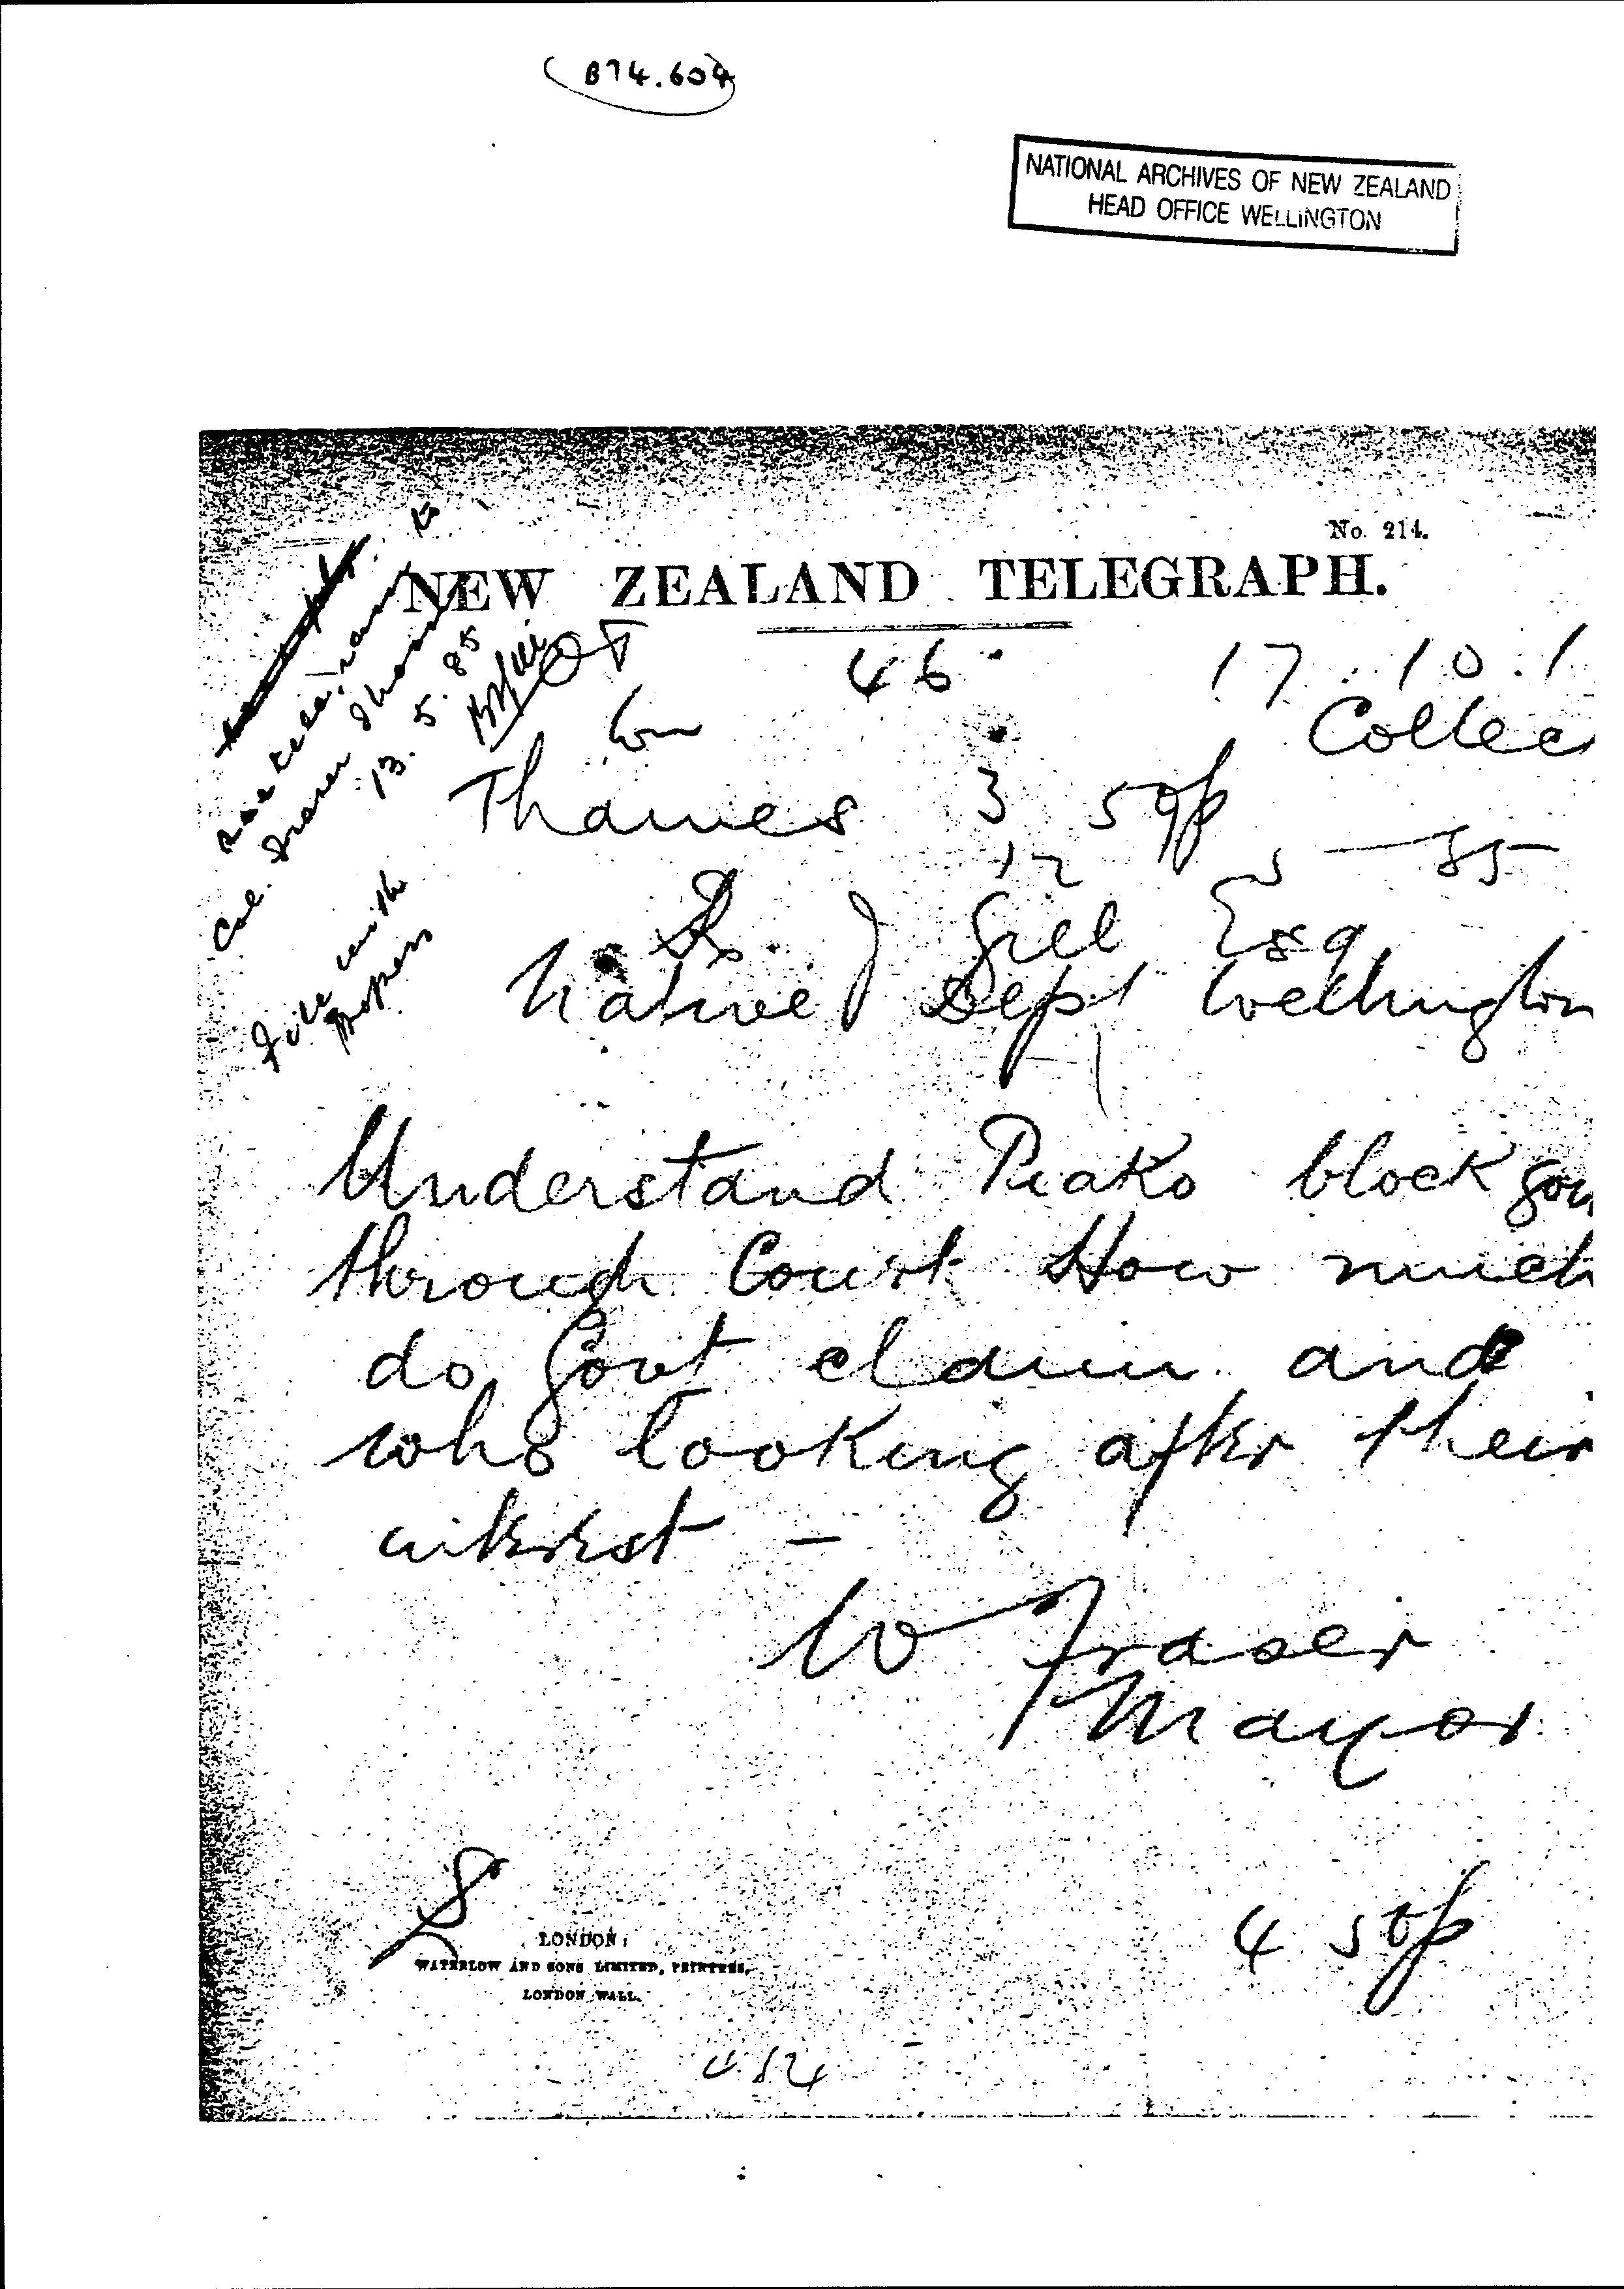 B74.604
NATIONAL ARCHIVES OF NEW ZEALAND
HEAD OFFICE WELLINGTON
No. 214.
NEW ZEALAND TELEGRAPH.
46 17.10.1
Collec
Thames 3 59p
12 5 - 85
R. J Gill Esq
Native Dept Wellington
telegram to
Col. Fraser Thames
13.5.85
File with
papers
Understand Piako block gon
through Court How much
do Govt claim and
who looking after their
interest -
W Fraser
Mayor
LONDON:
WATERLOW AND SONS LIMITED, PRINTERS,
LONDON WALL.
4 50p